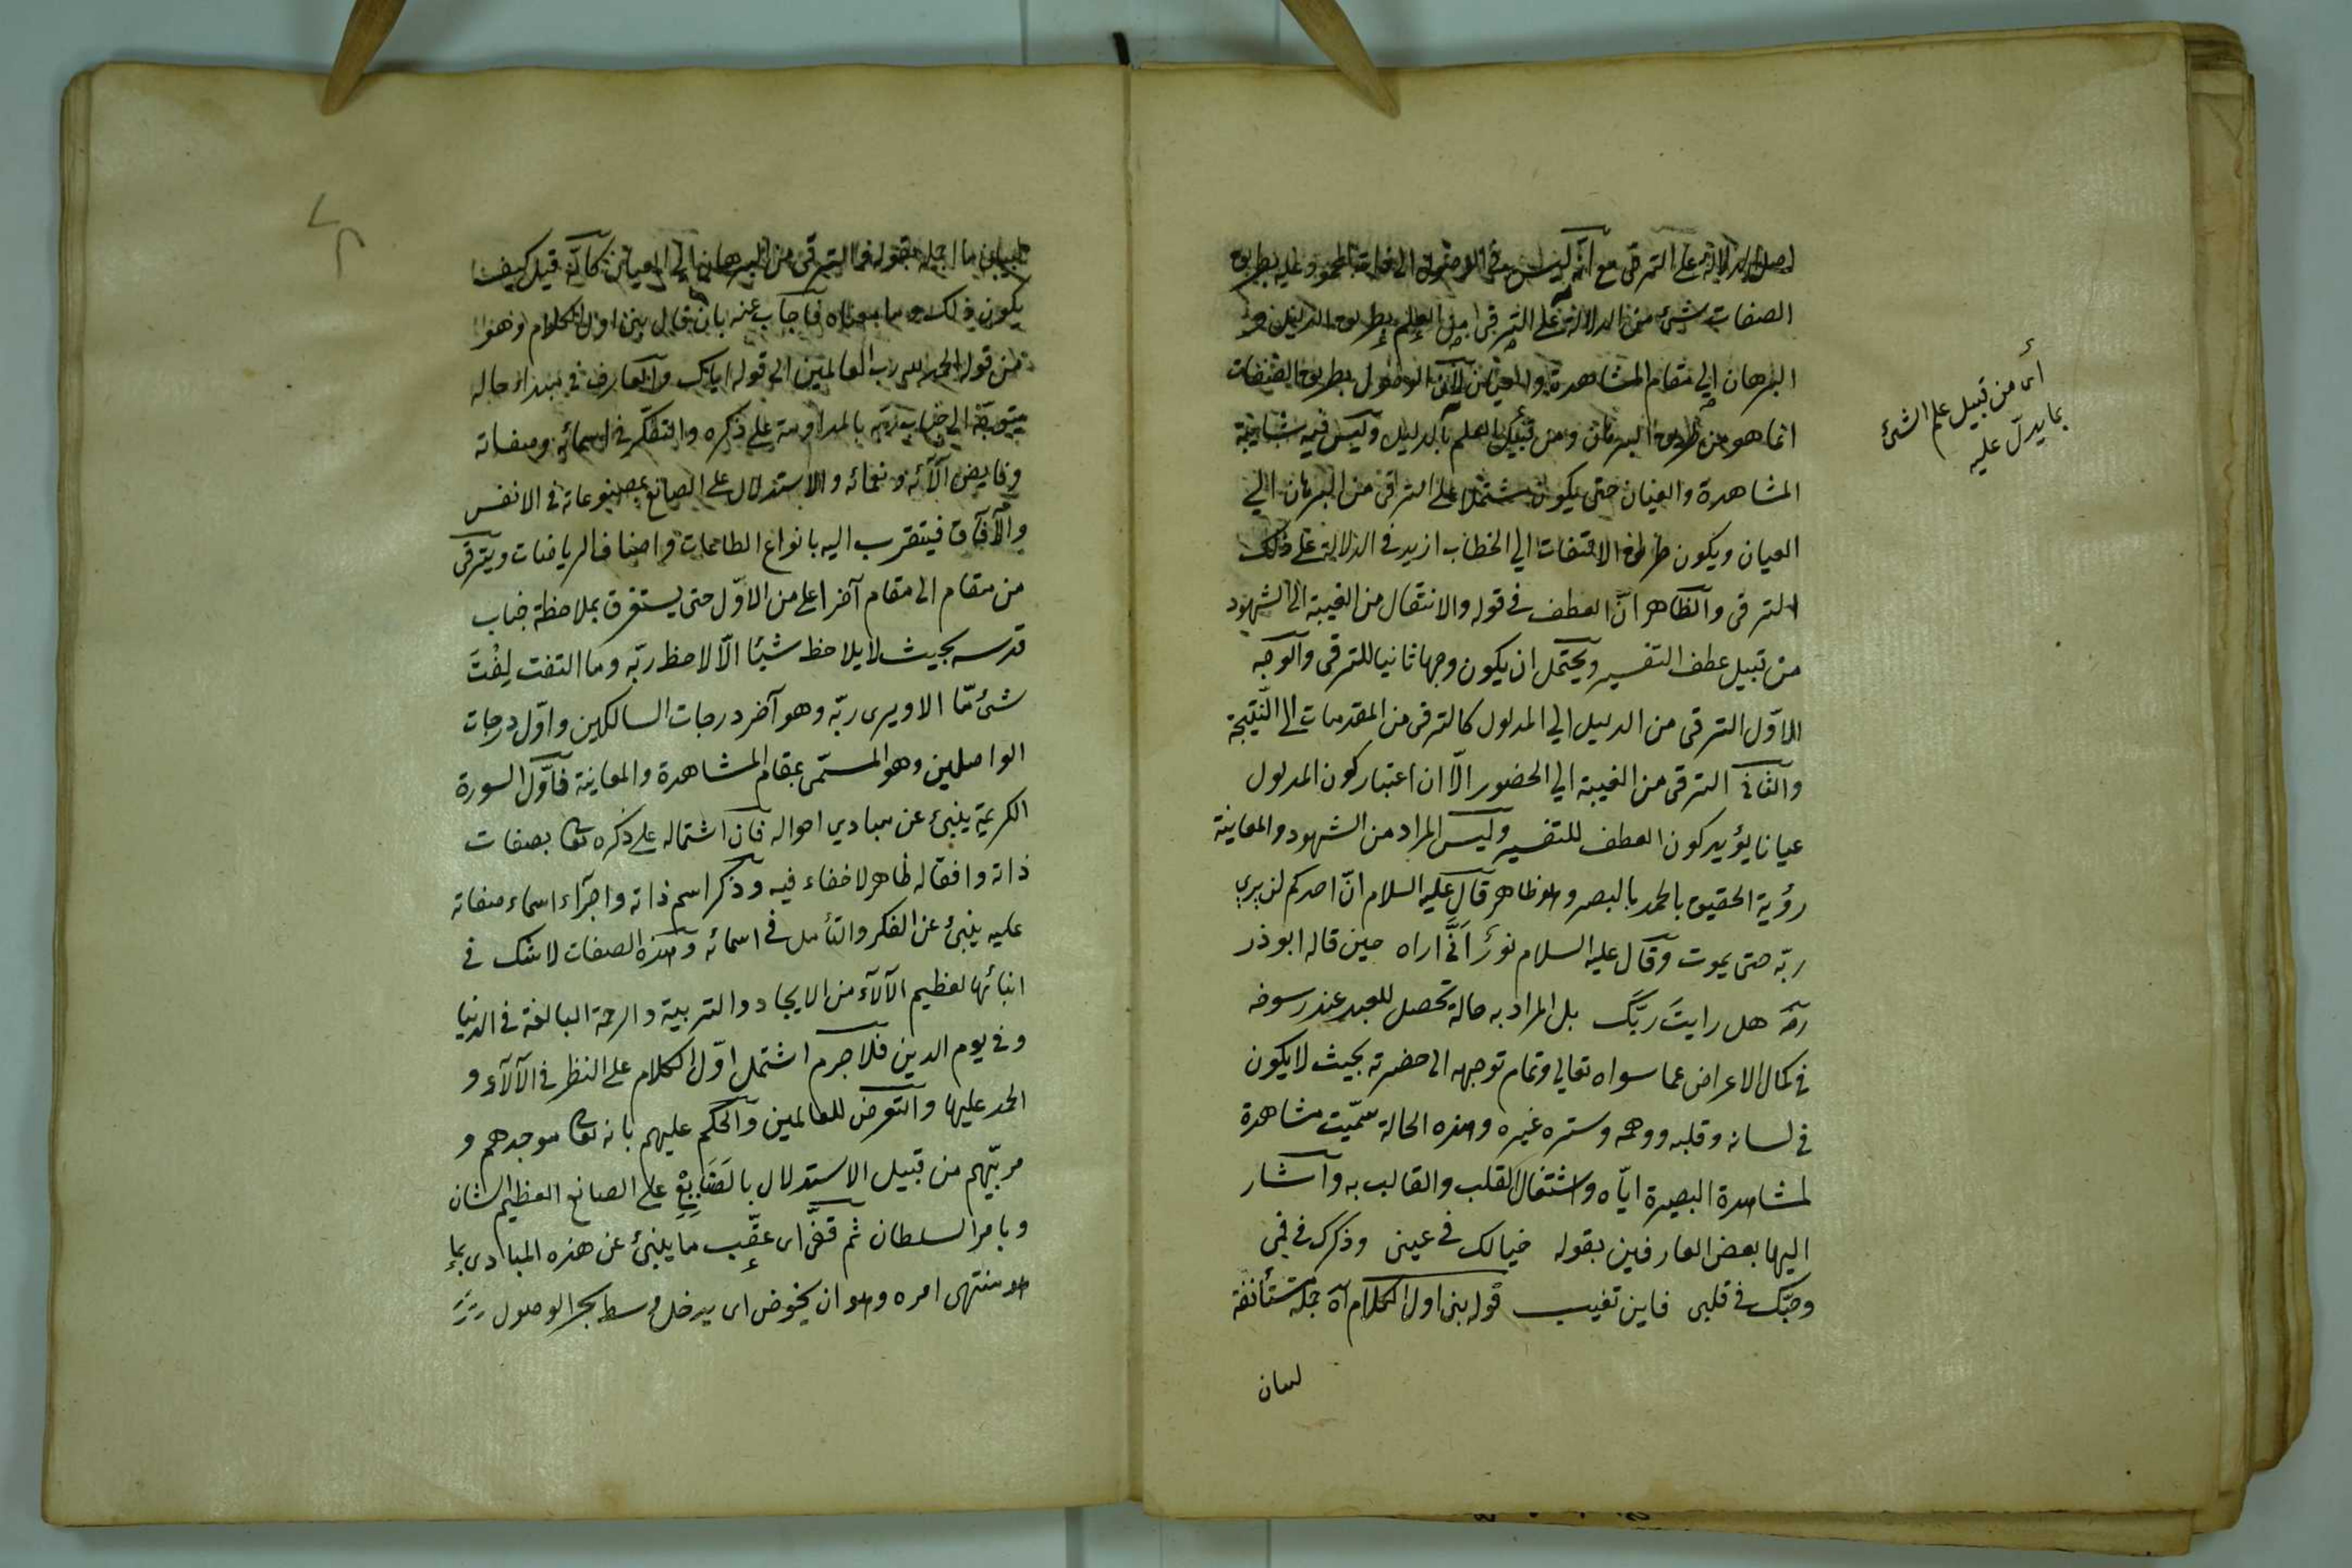 اصل الدلالة على الترقى مع انه ليس فى الوصول الى ذات المحمود عليه بطريق
الصفات شئ من الدلالة على الترقى من العلم بطريق الدليل و
البرهان الى مقام المشاهدة والعيان لان الوصول بطريق الصفات
انما هو من طريق البرهان ومن قبيل العلم بالدليل وليس فيه شائبة
المشاهدة والعيان حتى يكون مشتملا على الترقى من البرهان الي
العيان ويكون طريق الالتفات الي الخطاب ازيد فى الدلالة على ذلك
الترقى والظاهر انّ العطف فى قوله والانتقال من الغيبة الى الشهود
من قبيل عطف التفسير ويحتمل ان يكون وجها ثانيا للترقى والوجه
الاوّل الترقى من الدليل الي المدلول كالترقى من المقدمات الى النتيجة
والثانى الترقى من الغيبة الي الحضور الّا ان اعتبار كون المدلول
عيانا يؤيد كون العطف للتفسير وليس المراد من الشهود والمعاينة
رؤية الحقيق بالحمد بالبصر وهو ظاهر قال عليه السلام انّ احدكم لن يري
ربّه حتى يموت وقال عليه السلام نورٌ اَنَّى اراه حين قاله ابو ذر
رضه هل رايتَ ربَّك بل المراد به حالة تحصل للعبد عند رسوخه
فى كمال الاعراض عما سواه تعالي وتمام توجهه الى حضرته بحيث لا يكون
فى لسانه وقلبه ووهمه وسرّه غيره وهذه الحالة سمّيت مشاهدة
لمشاهدة البصيرة ايّاه واشتغال القلب والقالب به واشار
اليها بعض العارفين بقوله خيالك فى عينى وذكرك فى فمى
وحبّك فى قلبى فاين تغيب قوله بنى اول الكلام آه جملة مستأنفة
لبيان
أى من قبيل علم الشئ
بما يدلّ عليه
لبيان ما اجمله بقوله فى الترقى من البرهان الى العيان كأنّه قيل كيف
يكون ذلك وما معناه فاجاب عنه بان قال بنى اول الكلام وهو
من قوله الحمد لله رب العالمين الى قوله اياك والعارف فى مبدأ حاله
متوجّه الى جناب ربّه بالمداومة على ذكره والتفكّر فى اسمائه وصفاته
وفايض آلآئه ونعمائه والاستدلال على الصانع بمصنوعاته فى الانفس
والآفاق فيتقرب اليه بانواع الطاعات واصناف الرياضات ويترقى
من مقام الى مقام آخر اعلى من الاوّل حتى يستغرق بملاحظة جناب
قدسه بحيث لا يلاحظ شيئا الّا لاحظ ربّه وما التفت لِفْتَ
شئ مّا الا ويرى ربّه وهو آخر درجات السالكين واوّل درجات
الواصلين وهو المسمّى بمقام المشاهدة والمعاينة فاوّل السورة
الكريمة ينبئ عن مبادي احواله فان اشتماله على ذكره تعالى بصفات
ذاته وافعاله ظاهر لا خفاء فيه وذكر اسم ذاته واجرآء اسماء صفاته
عليه ينبئ عن الفكر والتأمل فى اسمائه وهذه الصفات لا شك فى
انبائها لعظيم الآلآء من الايجاد والتربية والرحمة البالغة فى الدنيا
وفى يوم الدين فلا جرم اشتمل اوّل الكلام على النظر فى الآلآء و
الحمد عليها والتعرض للعالمين والحكم عليهم بانه تعالى موجدهم و
مربّيهم من قبيل الاستدلال بالصَنَايِعِ على الصانع العظيم الشان
وباهر السلطان ثم قفّى اى عقّب ما ينبئ عن هذه المبادى بما
هو منتهى امره وهو ان يخوض اى يدخل وسط بحر الوصول